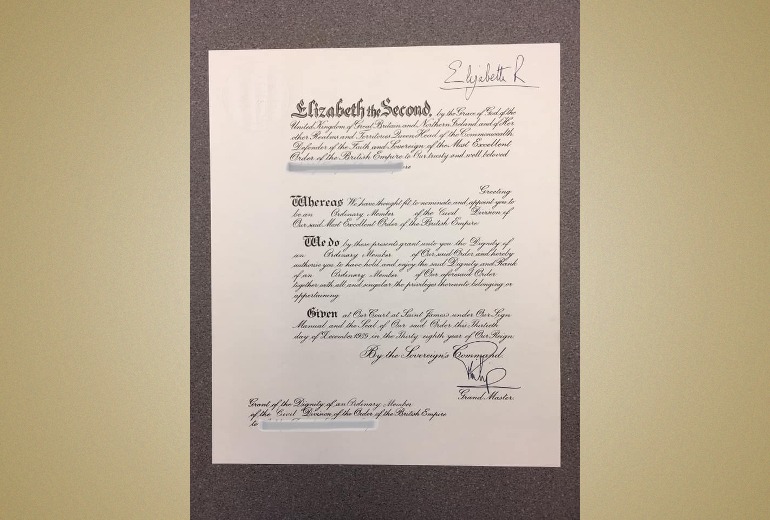 Elizabeth R
Elizabeth the Second, by the Grace of God of the
United Kingdom of Great Britain and Northern Ireland and of Her
other Realms and Territories Queen, Head of the Commonwealth,
Defender of the Faith and Sovereign of the Most Excellent
Order of the British Empire to Our trusty and well beloved
Greeting
Whereas We have thought fit to nominate and appoint you to
be an Ordinary Member of the Civil Division of
Our said Most Excellent Order of the British Empire
We do by these presents grant unto you the Dignity of
an Ordinary Member of Our said Order and hereby
authorise you to have hold and enjoy the said Dignity and Rank
of an Ordinary Member of Our aforesaid Order
together with all and singular the privileges thereunto belonging or
appertaining
Given at Our Court at Saint James's under Our Sign
Manual and the Seal of Our said Order this Thirtieth
day of December 1989 in the Thirty eighth year of Our Reign.
By the Sovereign's Command.
Grand Master
Grant of the Dignity of an Ordinary Member
of the Civil Division of the Order of the British Empire
to